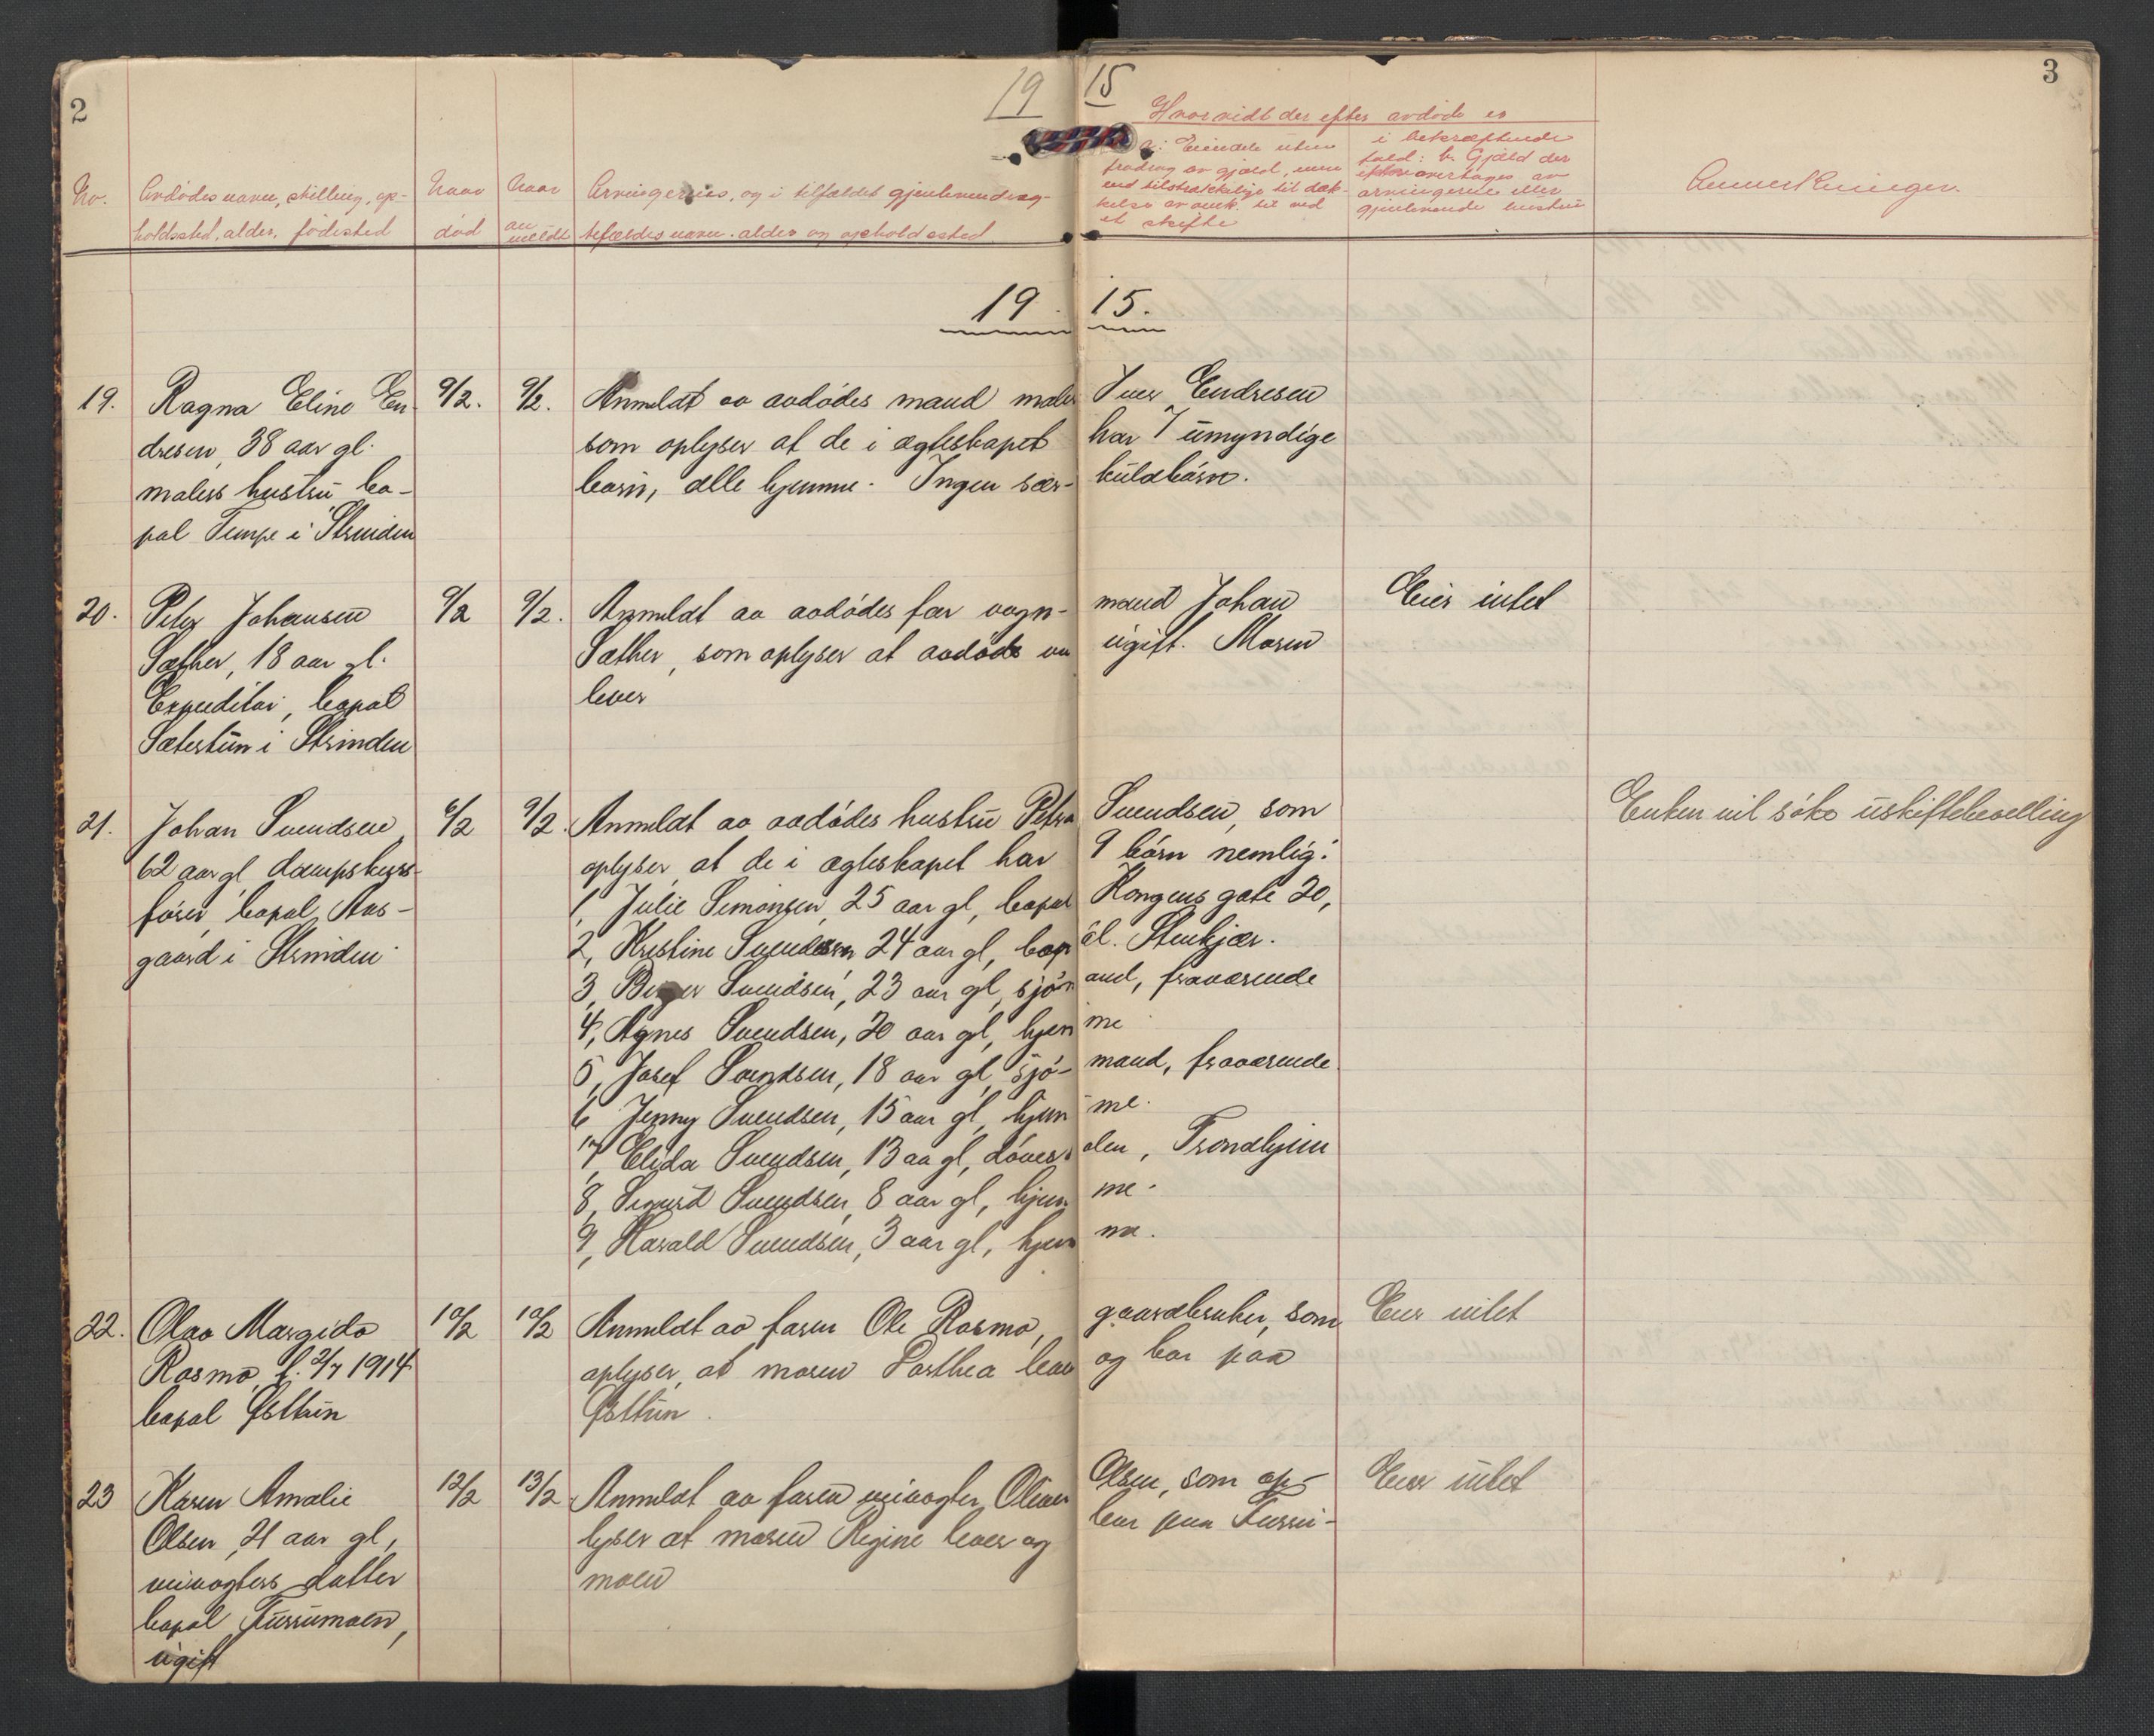 2
19 15
3
No.
Avdødes navn, stilling, op-
holdssted, alder, fødested
Naar
død
Naar
an
meldt
Arvingernes, og i tilfældet gjenlevende æg-
tefældes navn, alder og opholdssted
Hvorvidt der efter avdøde er
a: Eiendele uten
fradrag av gjæld, mere
end tilstrækkelige til dæk-
kelse av omk. til ved
et skifte
i bekræftende
fald: b. Gjæld der
overtages av
arvingerne eller
gjenlevende hustru
Anmerkninger.
19 15.
19. Ragna Eline En-
dresen, 38 aar gl.
malers hustru bo-
pæl Tempe i Strinden
9/2. 9/2.
Anmeldt av avdødes mand maler Iver Endresen
som oplyser at de i ægteskapet har 7 umyndige
børn, alle hjemme. Ingen sær- kuldbørn.
20. Peter Johansen
Sæther, 18 aar gl.
Expeditør, bopæl
Sætertun i Strinden
9/2 9/2.
Anmeldt av avdødes far vogn- mand Johan
Sæther, som oplyser at avdøde var ugift. Moren
lever
Eier intet
21. Johan Svendsen
62 aar gl. dampskibs-
fører, bopæl Aas-
gaard i Strinden
6/2 9/2.
Anmeldt av avdødes hustru Petra Svendsen, som
oplyser, at de i ægteskapet har 9 børn nemlig:
1, Julie Simonsen, 25 aar gl, bopæl Kongens gate 20,
2, Kristine Svendsen 24 aar gl, bop æl. Stenkjær.
3, Birger Svendsen, 23 aar gl, sjøm and, fraværende
4, Agnes Svendsen, 20 aar gl, hjem me
5, Josef Svendsen, 18 aar gl, sjø- mand, fraværende
6 Jenny Svendsen, 15 aar gl, hjem- me.
7, Elida Svendsen, 13 aa gl, døves olen, Trondhjem
8, Sigurd Svendsen, 8 aar gl, hjem me.
9, Harald Svendsen, 3 aar gl, hjem me.
Enken vil søke uskiftebevilling
22. Olav Margido
Rosmo, f. 2/7 1914
bopæl Østtun
10/2 10/2
Anmeldt av faren Ole Rosmo, gaardbruker, som
oplyser, at moren Dorthea lever og bor paa
Østtun.
Eier intet
23 Karen Amalie
Olsen, 21 aar gl,
veivogters datter
bopæl Furrumoen,
ugift
12/2 13/2
Anmeldt av faren veivogter Oliver Olsen, som op-
lyser at moren Regine lever og bor paa Furru-
moen
Eier intet